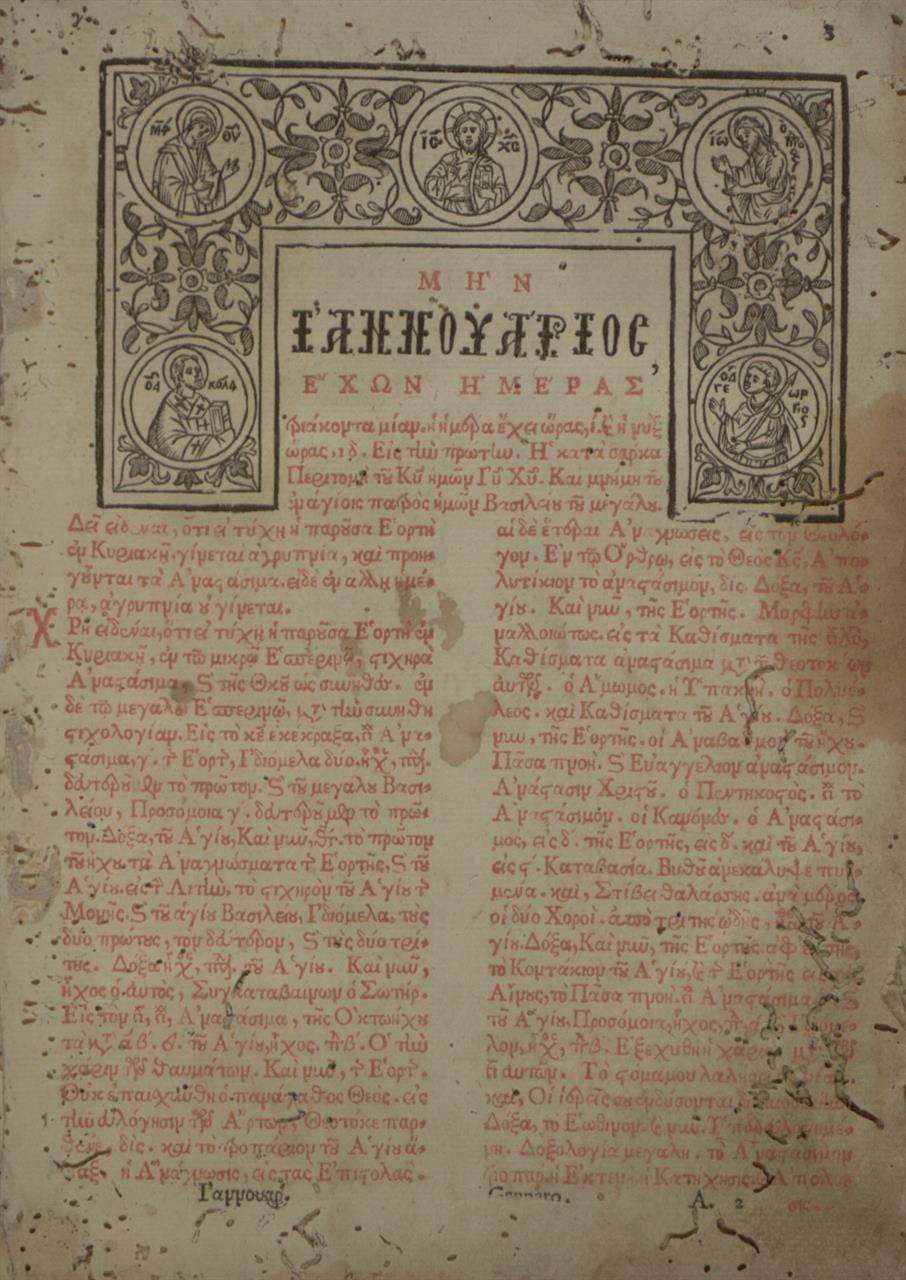 3
ΜΡ ΘΥ
ΙС ΧС
ΙΩ
ΚΟΛΑ
Ο ΑΓ ΓΕ ΩΡ ΓΙΟC
ΜῊΝ
ἸΑΝΝΟΥΆΡΙΟΣ,
ἜΧΩΝ ἩΜΈΡΑΣ
τριάκοντα μίαν. ἡ ἡμέρα ἔχει ὥρας, ι, κ ἡ νὺξ
ὥρας, ιδ. Εἰς τὴν πρώτην. Ἡ κατὰ σάρκα
Περιτομὴ τοῦ Κυ̅ ἡμῶν Ιυ̅ Χυ̅. Καὶ μνήμη τοῦ
ἐν ἁγίοις πατρὸς ἡμῶν Βασιλείου τοῦ μεγάλου.
Δεῖ εἰδέναι, ὅτι εἰ τύχῃ ἡ παροῦσα Ἑορτὴ
ἐν Κυριακῇ, γίνεται ἀγρυπνία, καὶ προη-
γοῦνται τὰ Ἀναστάσιμα. εἰ δὲ ἐν ἄλλῃ ἡμέ-
ρᾳ, ἀγρυπνία οὐ γίνεται.
Χρὴ εἰδέναι, ὅτι εἰ τύχῃ ἡ παροῦσα Ἑορτὴ ἐν
Κυριακῇ, ἐν τῷ μικρῷ Ἑσπερινῷ, στιχηρὰ
Ἀναστάσιμα, ϗ τῆς Θκου ὡς σύνηθες. ἐν
δὲ τῷ μεγάλῳ Ἑσπερινῷ, μτ τὴν συνήθη
στιχολογίαν. Εἰς τὸ κε ἐκέκραξα, Ἀνα-
στάσιμα, γ. τ Ἑορτ, Ἰδιόμελα δύο, ἦχ, πλ.
δευτεροῦμεν τὸ πρῶτον. ϗ τοῦ μεγάλου Βασι-
λείου, Προσόμοια γ. δευτεροῦμεν τὸ πρῶ-
τον. Δόξα, τοῦ Ἁγίου, Καὶ νῦν, θτ. τὸ πρῶτον
τοῦ ἤχου τὰ Ἀναγνώσματα τ Ἑορτῆς, ϗ τοῦ
Ἁγίου. εἰς τ Λιτὴν, τὸ στιχηρὸν τοῦ Ἁγίου τ
Μονῆς. ϗ τοῦ ἁγίου Βασιλείου, Ἰδιόμελα, τοὺς
δύο πρώτους, τὸν δεύτερον, ϗ τοὺς δύο τρί-
τους. Δόξα ἦχ, πλ. τοῦ Ἁγίου. Καὶ νῦν,
ἦχος ὁ αὐτὸς, Συγκαταβαίνων ὁ Σωτήρ.
Εἰς τὸν Ἀναστάσιμα, τῆς Ὀκτωήχου
τοῦ Ἁγίου, ἦχος. πλβ. Ὁ τὴν
χάριν τῶν θαυμάτων. Καὶ νῦν, τ Ἑορτ.
Οὐκ ἐπαισχύνθη ὁ πανάγαθος Θεός. εἰς
τὴν εὐλόγησιν τῶν Ἄρτων, Θεοτόκε παρ-
θένε, δίς. καὶ τὸ τροπάριον τοῦ Ἁγίου ἅ-
παξ. ἡ Ἀνάγνωσις, εἰς τὰς Ἐπιστολάς.
Γαννουαρ.
αἱ δὲ ἕτεραι Ἀναγνώσεις, εἰς τὸν Θεολό-
γον. Ἐν τῷ Ὄρθρῳ, εἰς τὸ Θεὸς Κς, Ἀπο-
λυτίκιον τὸ ἀναστάσιμον, δίς. Δόξα, τοῦ Ἁ-
γίου. Καὶ νῦν, τῆς Ἑορτῆς. Μορφὴν ἀ-
ναλλοιώτως. εἰς τὰ Καθίσματα τῆς
Καθίσματα ἀναστάσιμα μτ τ θεοτοκίων
αὐτῶν. ὁ Ἄμωμος. ἡ Ὑπακοή. ὁ Πολυέ-
λεος. καὶ Καθίσματα τοῦ Ἁγίου. Δόξα, ϗ
νῦν, τῆς Ἑορτῆς. οἱ Ἀναβαθμοὶ τοῦ ἤχου.
Πᾶσα πνοή. ϗ Εὐαγγέλιον ἀναστάσιμον.
Ἀνάστασιν Χριστοῦ. ὁ Πεντηκοστός. τὸ
Ἀναστάσιμον. οἱ Κανόνες. ὁ Ἀναστάσι-
μος, εἰς δ. τῆς Ἑορτῆς, εἰς δ. καὶ τοῦ Ἁγίου,
εἰς ς. Καταβασία. Βυθοῦ ἀνεκάλυψε πυθ-
μένα. καὶ, Στίβει θαλάσσης. ἀνὰ μέρος
οἱ δύο Χοροί. ἀπὸ τρίτης ᾠδῆς, τοῦ Ἁ-
γίου. Δόξα, Καὶ νῦν, τῆς Ἑορτῆς. ἀφ ἕκτης,
τὸ Κοντάκιον τοῦ Ἁγίου, ϗ τ Ἑορτῆς εἰς
Αἴνους, τὸ Πᾶσα πνοή. Ἀναστάσιμα ϗ
τοῦ Ἁγίου, Προσόμοια, ἦχος, Ἰδιόμε-
λον, ἦχ, πβ. Ἐξεχύθη ἡ χάρις
αὐτῶν. Τὸ στόμα μου λαλήσει
καὶ, Οἱ ἱερεῖς σου ἐνδύσονται
Δόξα, τὸ Ἑωθινόν. ϗ νῦν. Ὑπερευλογημέ-
νη. Δοξολογία μεγάλη. τὸ Ἀναστάσιμον
τροπάρ. ἡ Ἐκτενὴ, ἡ Κατήχησις. ϗ Ἀπόλυ-
Gennaro.
Α 2
σις.